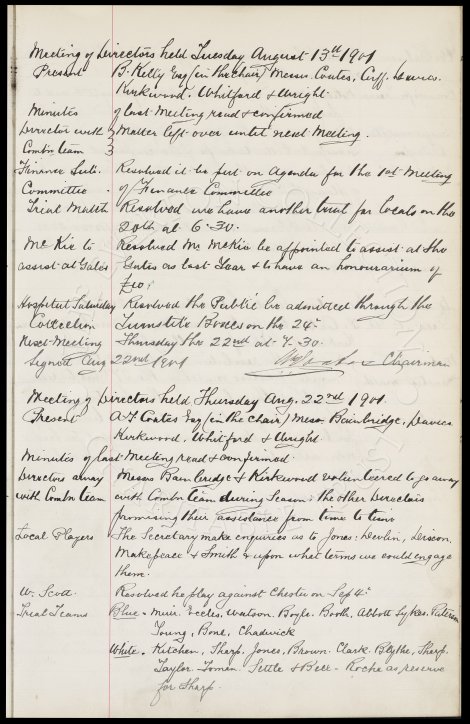 Meeting of Directors held Tuesday August 13th 1901
Present B. Kelly Esq (in the chair) Messrs Coates, Cuff, Davies.
Kirkwood. Whitford & Wright.
Minutes of last Meeting read & confirmed
Director with Matter left over until next Meeting.
Combn team
Finance Sub. Resolved it be put on Agenda for the 1st Meeting
Committee of Finance Committee
Trial Match Resolved we have another trial for locals on the
20th at 6-30.
McKie to Resolved Mr McKie be appointed to assist at the
assist at Gates Gates as last Year & to have an honourarium of
£10:
Hospital Saturday Resolved the Public be admitted through the
Collection Turnstile Boxes on the 24th
Next Meeting Thursday the 22nd at 7-30.
Signed Aug 22nd 1901 Chairman
Meeting of Directors held Thursday Aug. 22nd 1901.
Present A.T. Coates Esq (in the chair) Messrs Bainbridge, Davies
Kirkwood, Whitford & Wright.
Minutes of last Meeting read & confirmed.
Directors away Messrs Bainbridge & Kirkwood volunteered to go away
with Combn team with Combn team during season: the other Directors
promising their assistance from time to time
Local Players The Secretary make enquiries as to Jones. Devlin,
Makepeace & Smith & upon what terms we could engage
them.
W. Scott. Resolved he play against Chester on Sep 4th
Trial Teams Blue - Muir. Eccles, Watson. Boyle. Booth, Abbott Sykes. Paterson
Young, Bone, Chadwick
White. - Kitchen, Sharp. Jones, Brown. Clark. Blythe, Sharp.
Taylor. Settle & Bell - Roche as reserve
for Sharp.